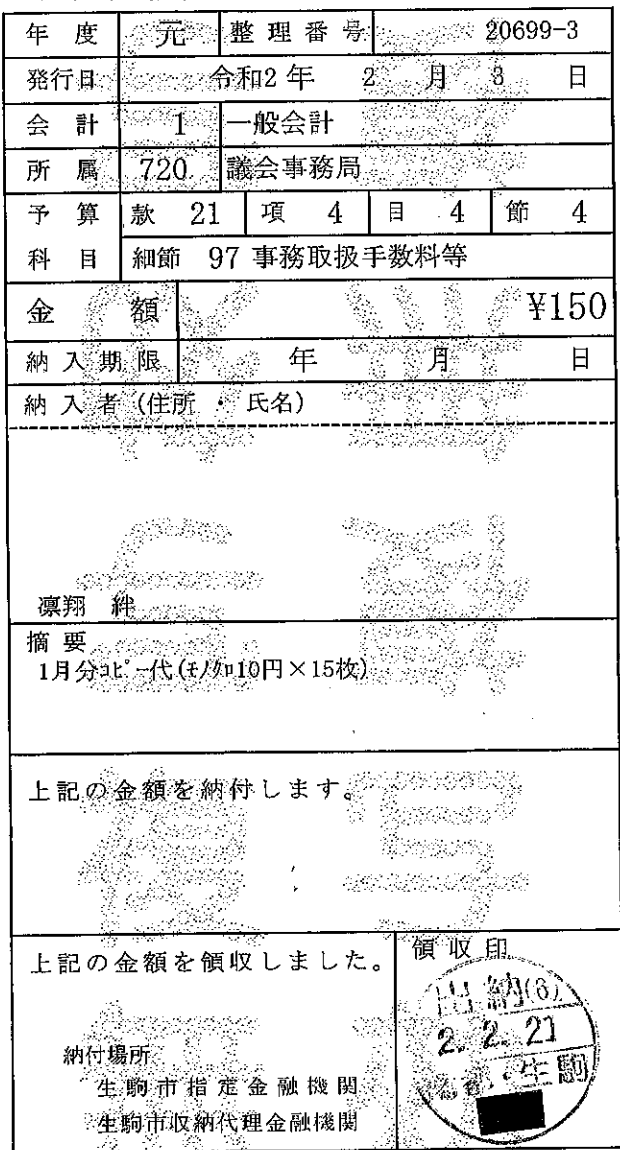 年度 元 整理番号 20699-3
発行日 令和2年 2月 3日
会計 1 一般会計
所属 720 議会事務局
予算 款 21 項 4 目 4 節 4
科目 細節 97 事務取扱手数料等
金額 ¥150
納入期限 年 月 日
納入者(住所・氏名)
凛翔 絆
摘要
1月分ｺﾋﾟｰ代(ﾓﾉｸﾛ10円×15枚)
上記の金額を納付します。
上記の金額を領収しました。
領収印
出納(6)
2.2.21
生駒
納付場所
生駒市指定金融機関
生駒市収納代理金融機関